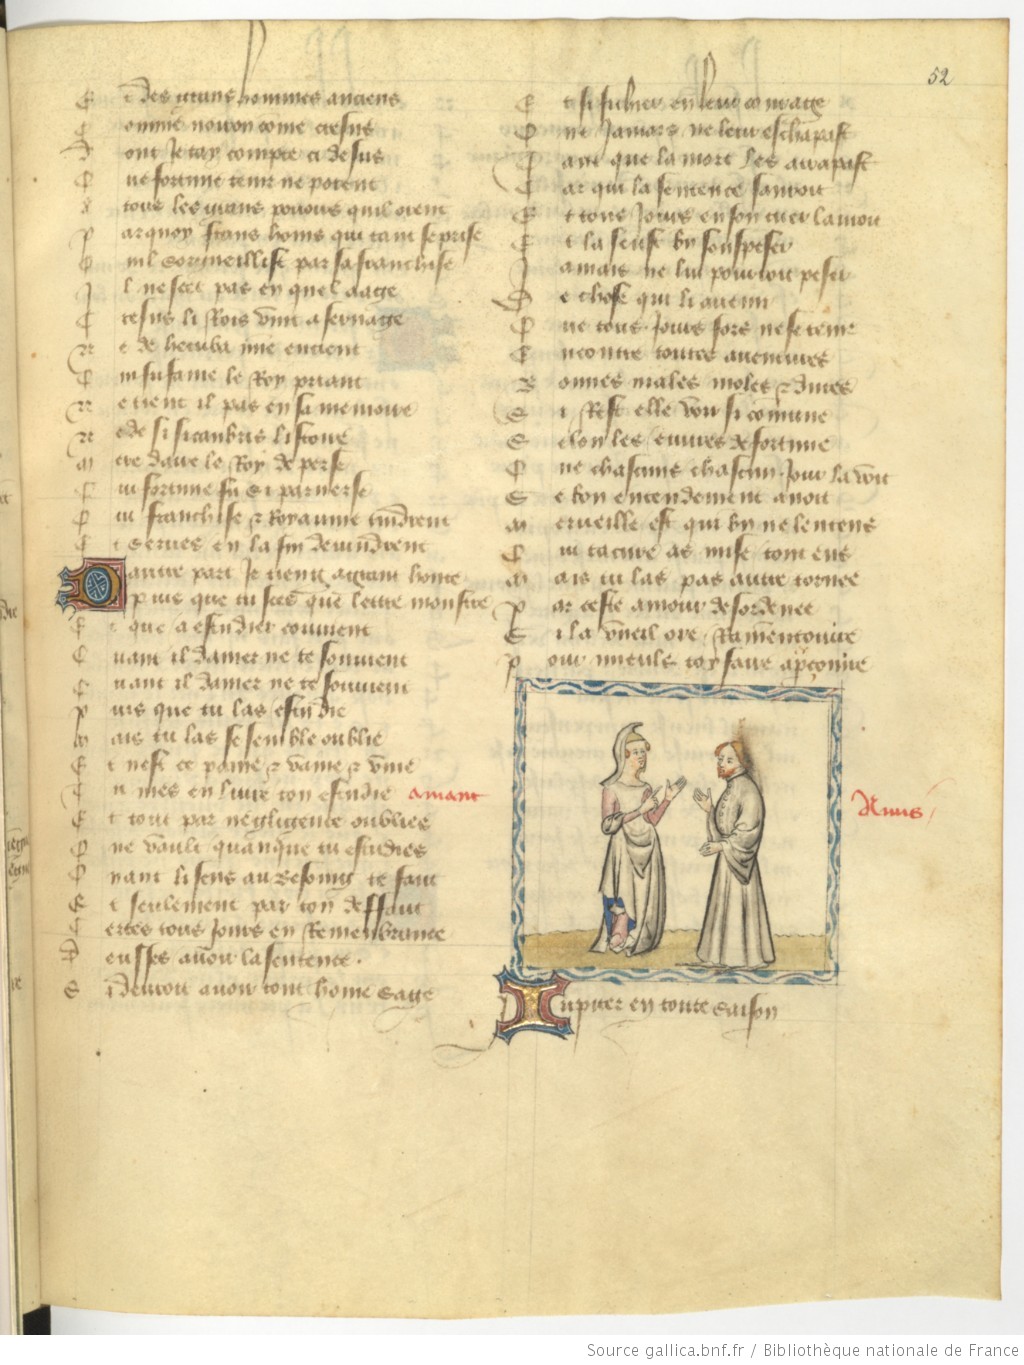 52
E t des grans hommes anciens
C omme noiron come cresus
D ont je tay compte ci desus
Q ue fortune tenir ne porent
X tous les grans pouous quil orent
P ar quoy frans homs qui tant se prise
Q uil sorgueillist par sa franchise
I l ne scet pas en quel aage
C resus li Rois vint a servage
N e de hecuba mie encient
Q ui fu fame le Roy priant
N e tient il pas en sa memoire
N e de sisicambris listoire
M ere daire le Roy de perse
C ui fortune fu si parverse
Q ui franchise et Royaume tindrent
E t serves en la fin devindrent
D autre part je tieng a grant honte
p uis que tu sces que lettre monte
E t que a estudier couvient
Q uant il damer ne te souvient
Q uant il damer ne te souvient
P uis que tu las estudie
M ais tu las se semble oublie
E t nest ce paine et vaine et vuie
T u mes en livre ton estudie amant
E t tout par negligence oublies
Q ne vault quanque tu estudies
Q uant li sens au besoing te faut
E t seulement par ton deffaut
C ertes tous jours en Remenbrance
D eusses avoir la sentence .
S i devroit avoir tout home sage
E t si fichier en leur courage
Q ue jamais ne leur eschapast
T ant que la mort les atrapast
C ar qui la sentence sauroit
E t tous jours en son cuer lauroit
E t la seust bien souspeser
J amais ne lui pourroit peser
D e chose qui li avenir
Q ue tous jours fors ne se tenir
E ncontre toutes aventures
B onnes males moles et dures
S i Rest elle voir si comune
S elon les euvres de fortune
Q ue chascuns chascun jour la voit
S e bon entendement avoit
M erveille est que bien ne lentens
Q ui ta cure as mise tout ens
M ais tu las pas autre tornee
P ar ceste amour desordenee
S i la vueil ore Ramentevoir
P our mieuls toy faire apercevoir
Nuus
Iupiter en toute saison
Source gallica.bnf.fr / Bibliothèque nationale de France